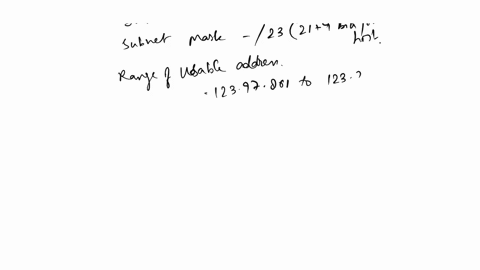 Subnet mask - /23 (21+4
host.
Range of Usable address.
123.97.801 to 123.